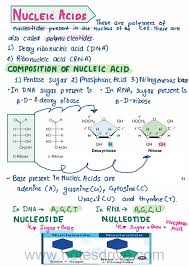 NUCLEIC ACIDS
These are polymers of
nucleotides present in the nucleus of the cell. These are
also called polynucleotides.
1) Deoxyribonucleic acid (DNA)
2) Ribonucleic acid (RNA)
COMPOSITION OF NUCLEIC ACID
1) Pentose sugar 2) Phosphoric Acid 3) Nitrogenous base
- In DNA sugar present is
β-D-2-deoxyribose
- In RNA, sugar present is
β-D-ribose
D-Ribose
D-Ribose
Deoxyribose
Ribose
- Base present in Nucleic acids are
adenine (A), guanine (G), cytosine (C)
Uracil (U) and thymine (T).
In DNA → A,G,C,T
In RNA → A,G,C,U
NUCLEOSIDE
↳ Sugar + Base
NUCLEOTIDE
↳ Sugar + Base +
Nucleoside
Nucleotide